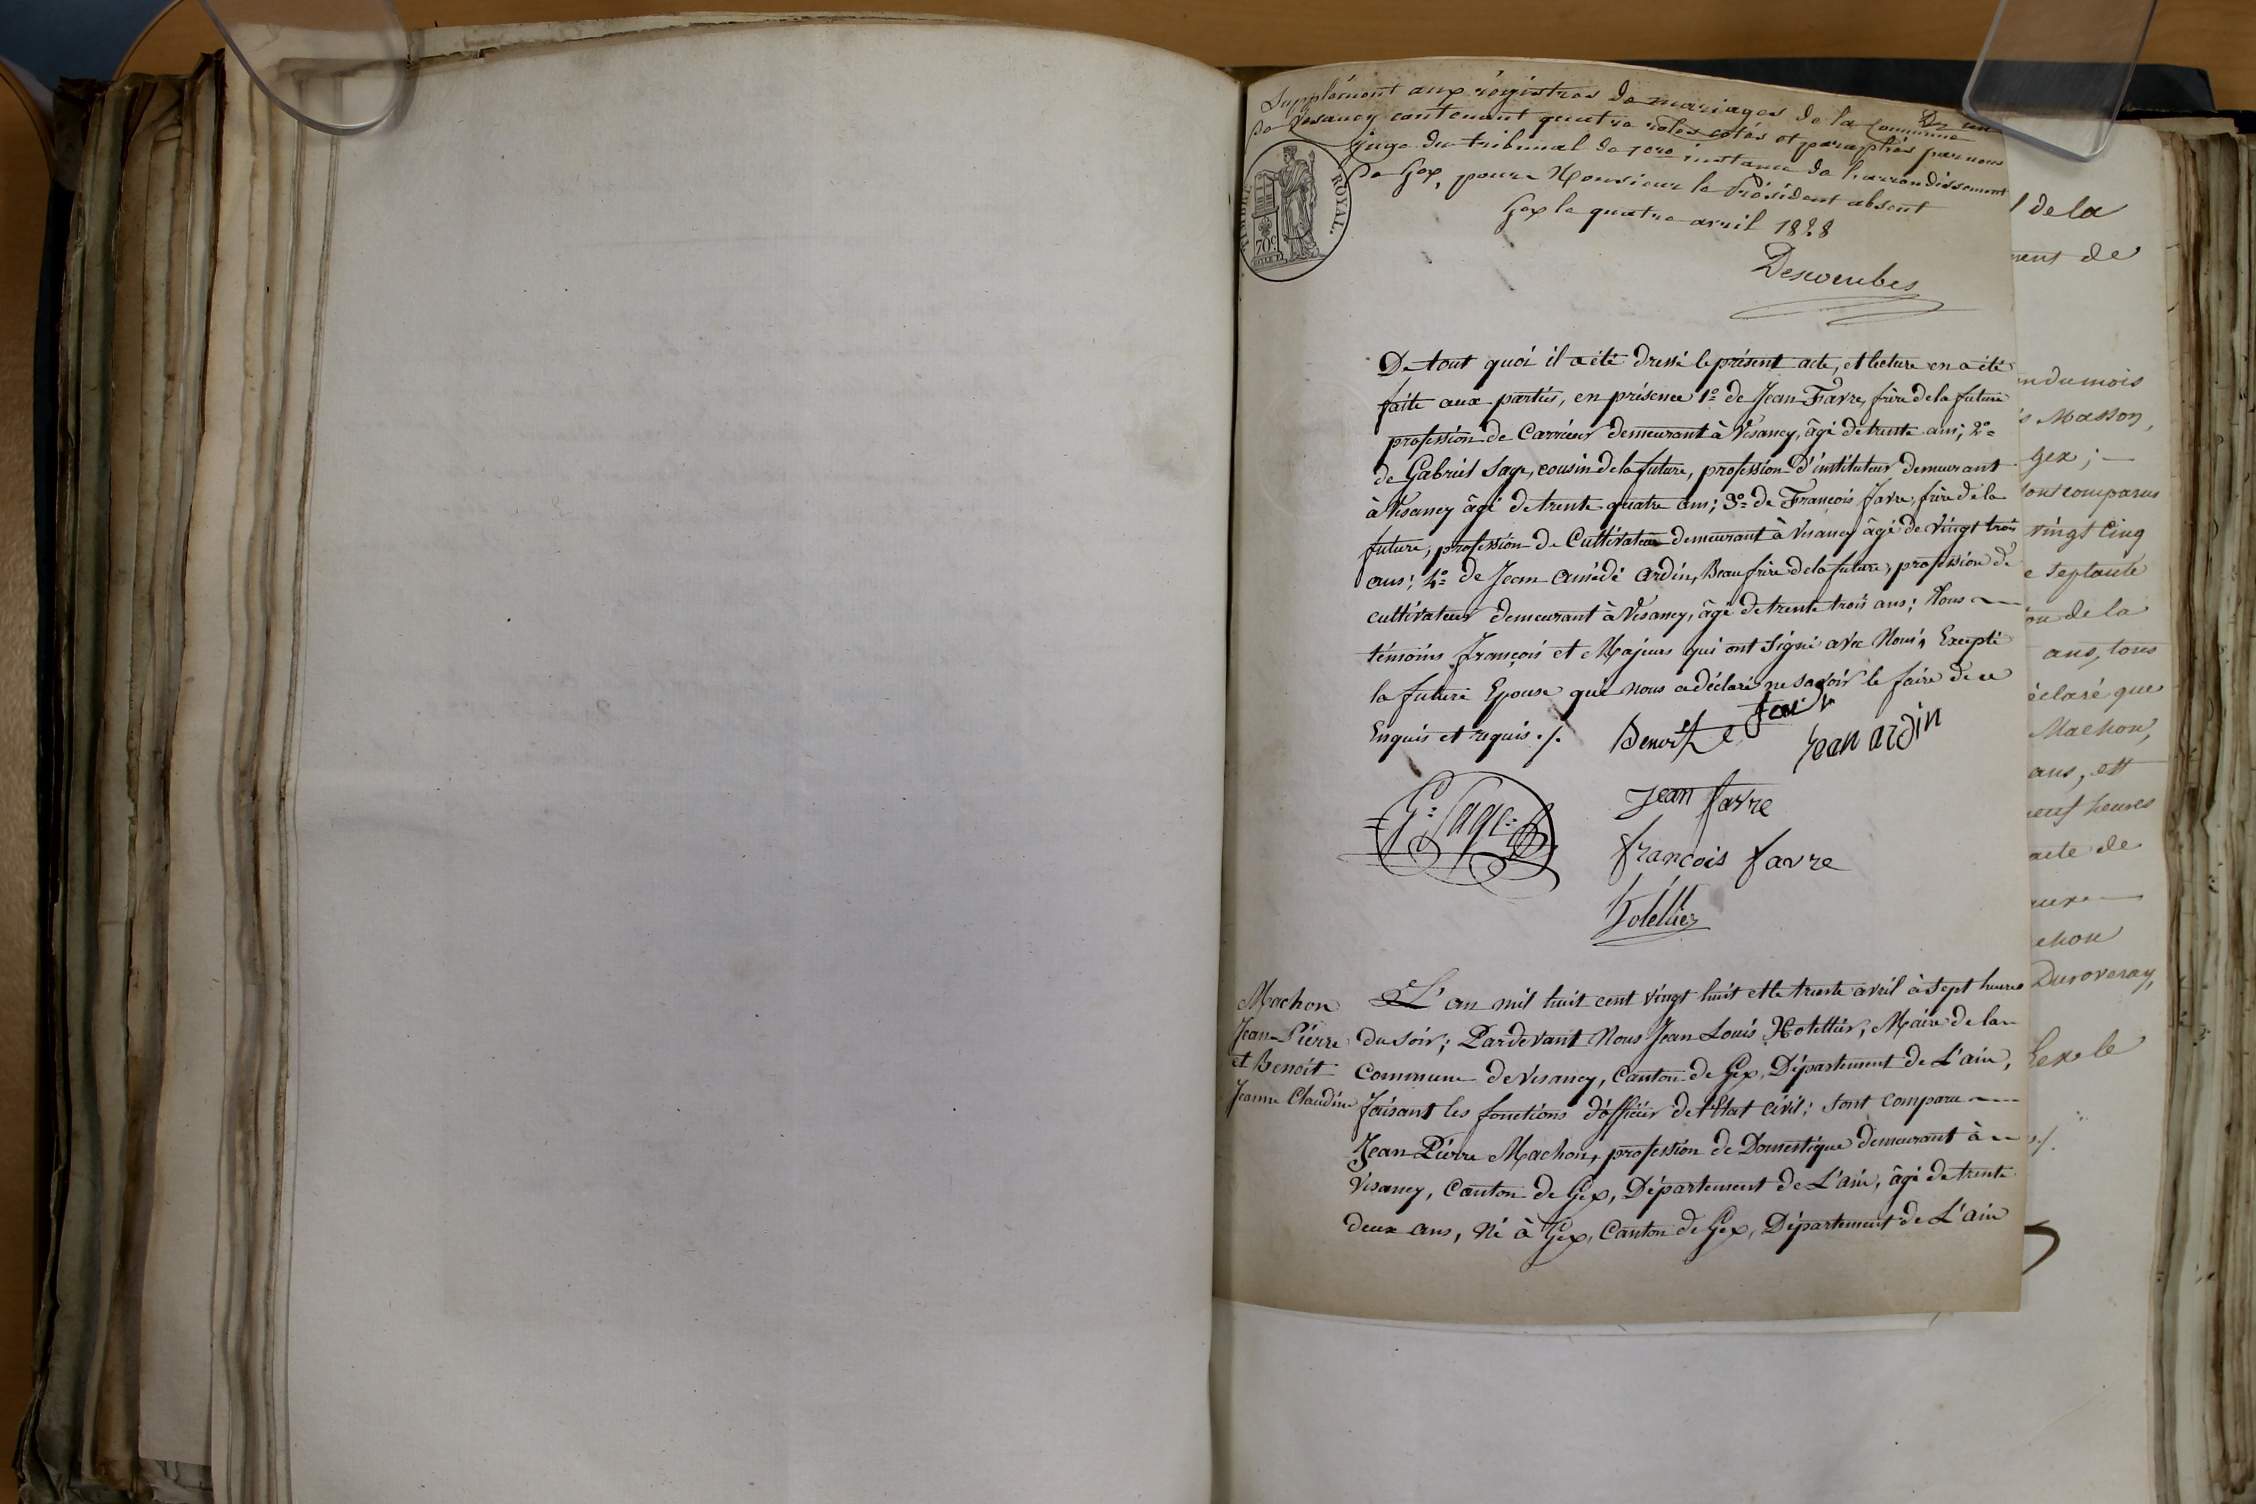 Supplément aux régistres de mariages de la Commune
de Vesancy contenant quatre roles cotés et paraphés par nous
juge du tribunal de 1ere instance de l'arrondissement
De Gex, pour Monsieur le Président absent
Gex le quatre avril 1828
Descombes
TIMBRE ROYAL.
70c
De tout quoi il a été dressé le présent acte, et lecture en a été
faite aux parties, en présence 1º de Jean Favre, frère de la future
profession de Carrieur demeurant à Vesancy, âgé de trente ans; 2º
de Gabriel Sage, cousin de la future, profession D'instituteur demeurant
à Vesancy âgé de trente quatre ans; 3º de François Favre, frère de la
future, profession de Cultivateur demeurant à Vesancy âgé de vingt trois
ans; 4º de Jean amédé Ardin, Beaufrère de la future, profession de
cultivateur demeurant à Vesancy, âgé de trente trois ans; Tous
témoins françois et Majeurs qui ont signé avec Nous, Excepté
la future Epouse qui nous a déclaré ne savoir le faire de ce
Enquis et requis ./.
Benoit
Jean ardin
G: Sage:
Jean favre
francois favre
hotellier
Machon
Jean-Pierre
et Benoit
Jeanne Claudine
L'an mil huit cent vingt huit et le trente avril à sept heures
du soir; Pardevant Nous Jean Louis Hotellier, Maire de la
Commune de Vesancy, Canton de Gex, Département de L'ain,
faisant les fonctions d'officier de l'Etat civil; sont comparu
Jean Pierre Machon, profession de Domestique demeurant à
Vesancy, Canton de Gex, Département de L'ain, âgé de trente
deux ans, Né à Gex, Canton de Gex, Département de L'ain
de la
de
du mois
Masson,
Gex;
sont comparus
vingt Cinq
septante
de la
ans, tous
déclaré que
Machon,
ans, et
heures
acte de
Duroveray,
le